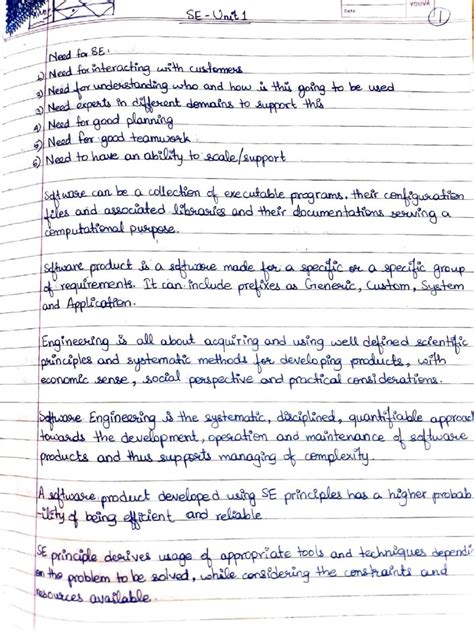 YOUVA
Date
1
SE - Unit 1
Need for SE:
1) Need for interacting with customers
2) Need for understanding who and how is this going to be used
3) Need experts in different domains to support this
4) Need for good planning
5) Need for good teamwork
6) Need to have an ability to scale/support
Software can be a collection of executable programs. their configuration
files and associated libraries and their documentations serving a
computational purpose.
Software product is a software made for a specific or a specific group
of requirements. It can include prefixes as Generic, Custom, System
and Application.
Engineering is all about acquiring and using well defined scientific
principles and systematic methods for developing products, with
economic sense, social perspective and practical considerations.
Software Engineering is the systematic, disciplined, quantifiable approach
towards the development, operation and maintenance of software
products and thus supports managing of complexity.
A software product developed using SE principles has a higher probab-
-ility of being efficient and reliable
SE principle derives usage of appropriate tools and techniques dependi
on the problem to be solved, while considering the constraints and
resources available.